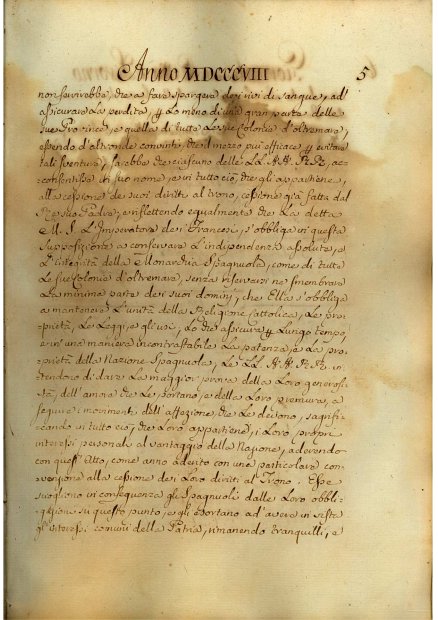 Anno MDCCCVIII
5
non servirebbe, che a fare spargere dei rivi di sangue, ad'
assicurare la perdita, per lo meno di una gran parte delle
sue Provincie, e quella di tutte le sue Colonie d'oltremare,
essendo d'altronde convinte, che il mezzo più efficace per evitare
tali sventure, sarebbe che ciascuno delle LL. AA. RR. ac-
consentisse in suo nome, e in tutto ciò, che gli appartiene,
alla cessione de suoi diritti al trono, cessione già fatta dal
Re suo Padre; riflettendo egualmente che la detta
M. S. L'Imperatore dei Francesi, s'obbliga in questa
supposizione a conservare l'indipendenza assoluta, e
l'integrità della Monarchia Spagnuola, come di tutte
le sue Colonie d'oltremare, senza riservarsi ne smembrare
la minima parte dei suoi dominj; che Ella s'obbliga
a mantenere l'unità della Religione Cattolica, le pro-
prietà, le leggi, e gl'usi; lo che assicura per lungo tempo,
e in una maniera incontrastabile la potenza, e la pro-
prietà della Nazione Spagnuola, le LL. AA. RR. in-
tendono di dare la maggior prova della loro generosi-
tà, dell'amore che le portano, e della loro premura, a
seguire i movimenti dell'affezione, che le devono, sagrifi-
cando in tutto ciò, che loro appartiene, i loro proprj
interessi personali al vantaggio della Nazione, aderendo
con quest'Atto, come anno aderito con una particolare con-
venzione alla cessione dei loro diritti al Trono. Esse
sciogliono in conseguenza gli Spagnuoli dalle loro obbli-
gazioni su questo punto, e gli esortano ad'avere in vista
gl'interessi comuni della Patria, rimanendo tranquilli, e